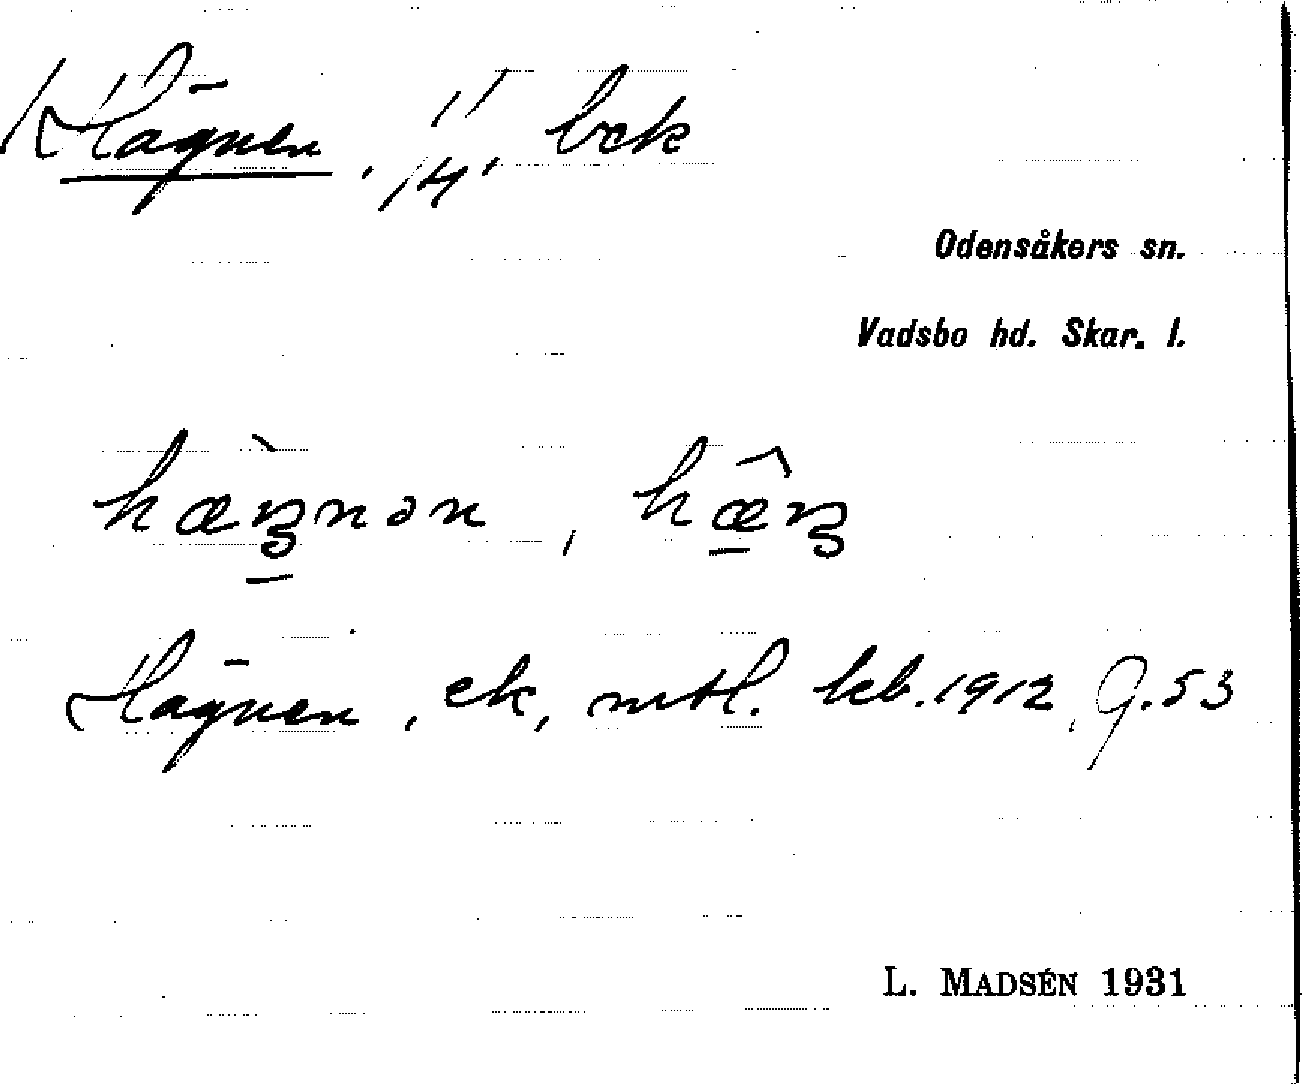 Hägnen, 1/14, bek
Odensåkers sn.
Vadsbo hd. Skar. l.
Hägnen, ek, mtl. kb. 1912, 9.53
L. MADSÉN 1931